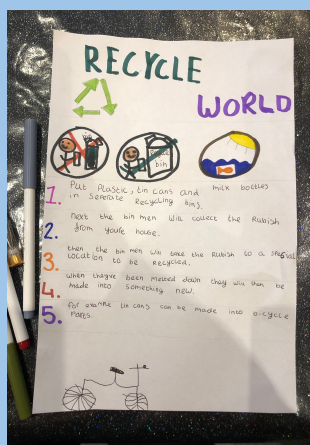 RECYCLE
WORLD
bin
1. Put Plastic, tin cans and milk bottles
in Seperate Recycling bins.
2. next the bin men will collect the Rubish
from youre house.
3. then the bin men will take the Rubish to a special
location to be Recycled.
4. when theyve been melted down they will then be
made into something new.
5. for example tin cans can be made into bicycle
Parts.